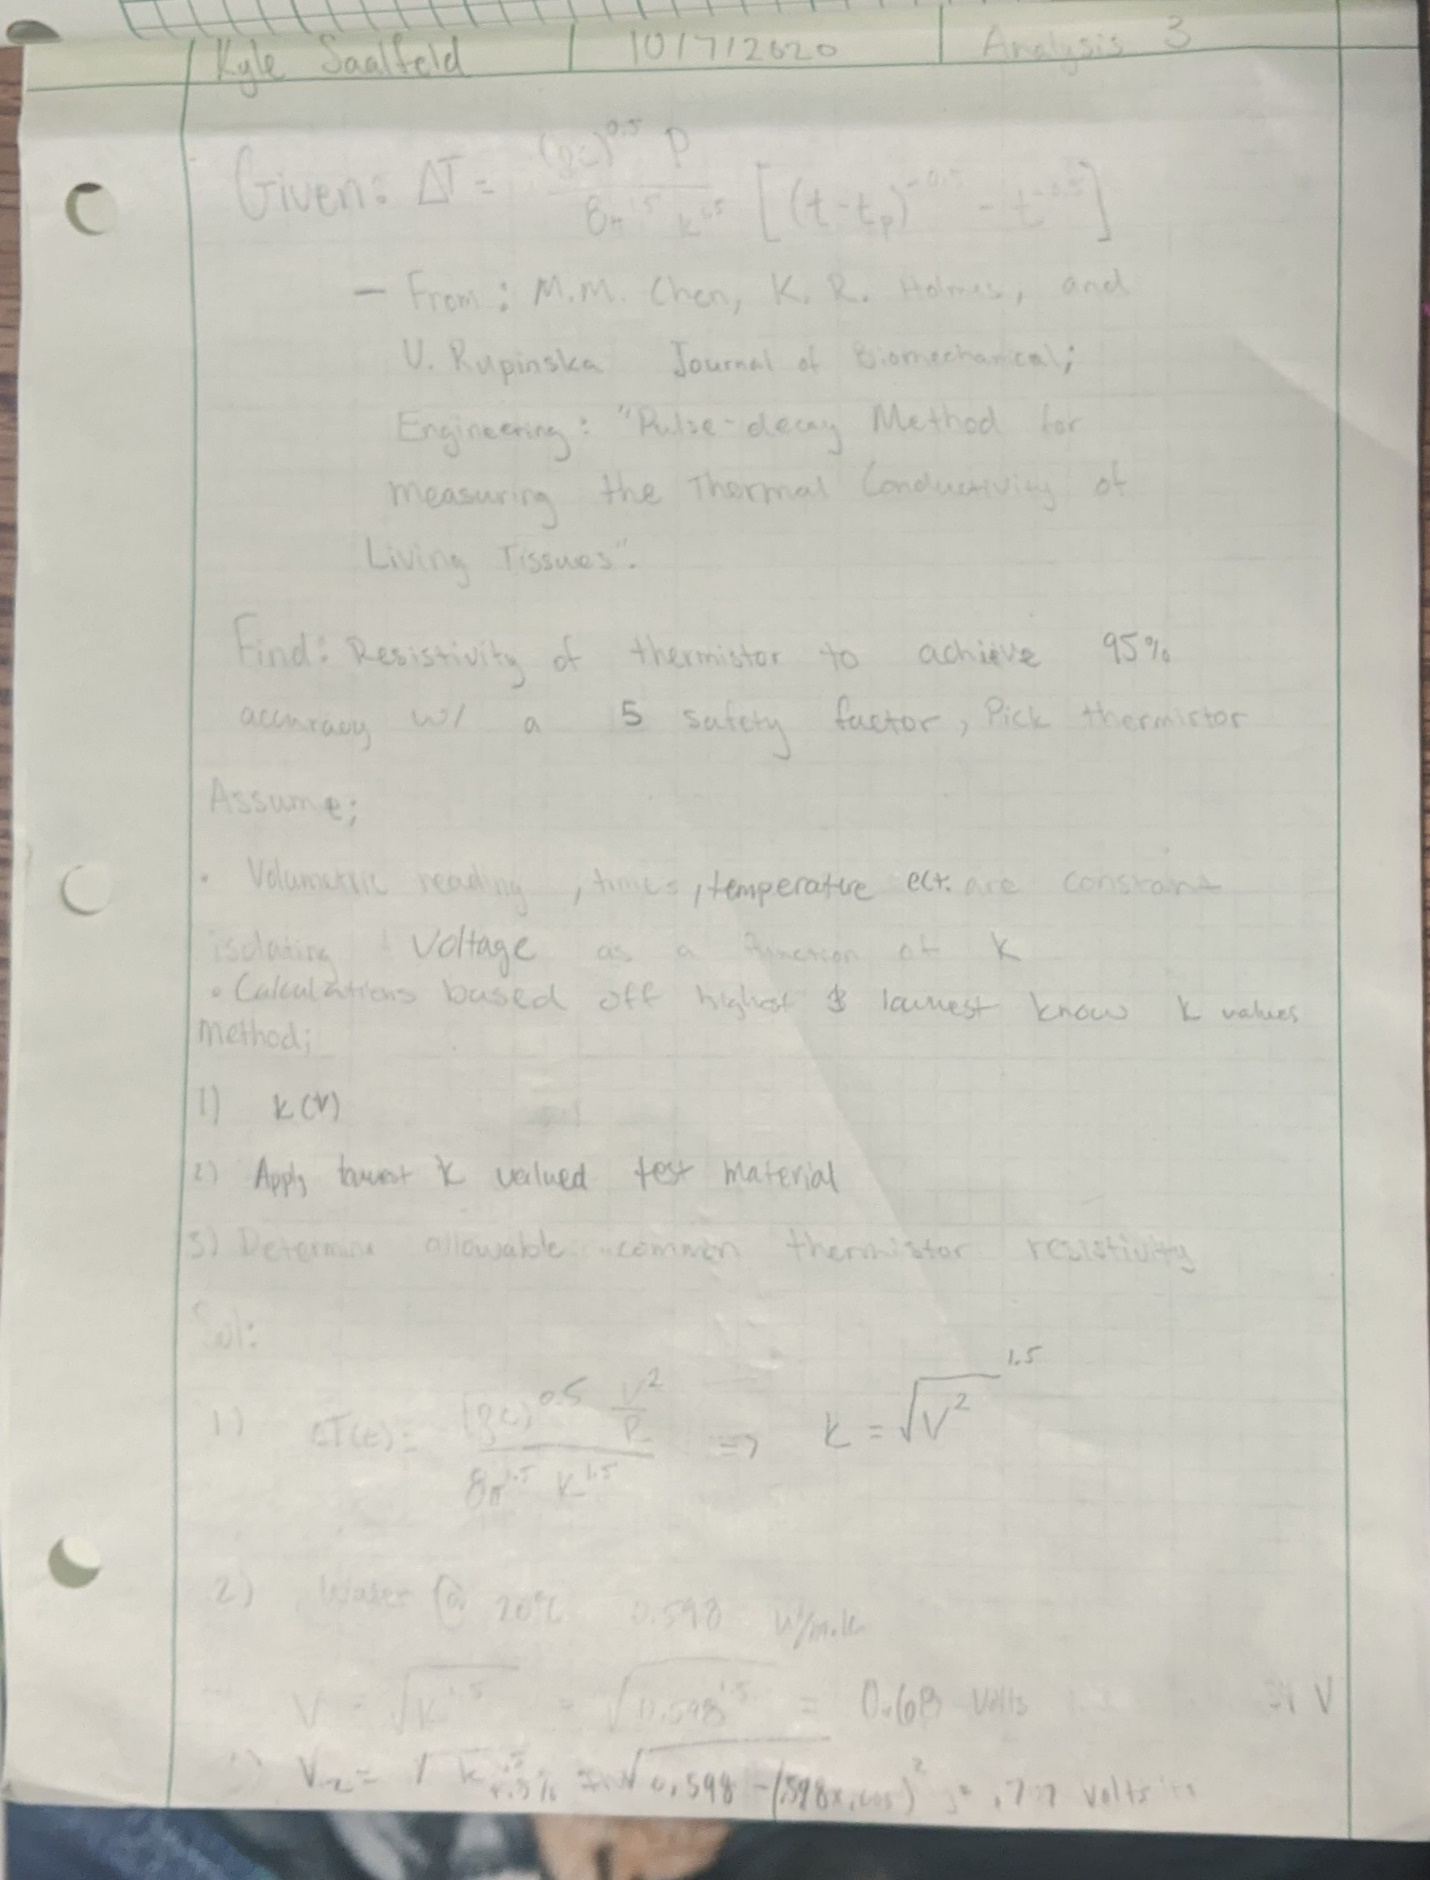 Kyle Saalfeld | 10/7/2020 | Analysis 3
Given: ΔT = (ρc)^0.5 P / 8π^1.5 k^1.5 [(t-tp)^-0.5 - t^-0.5]
- From: M.M. Chen, K. R. Holmes, and
V. Rupinska Journal of Biomechanical;
Engineering: "Pulse-decay Method for
measuring the Thermal Conductivity of
Living Tissues".
Find: Resistivity of thermistor to achieve 95%
accuracy w/ a 5 safety factor, Pick thermistor
Assume;
• Volumetric reading, times, temperature ect. are constant
isolating Voltage as a function of k
• Calculations based off highest & lowest know k values
Method;
1) k(V)
2) Apply lowest k valued test material
3) Determine allowable common thermistor resistivity
Sol:
1) ΔT(t) = (ρc)^0.5 V²/R / 8π^1.5 k^1.5 => k = √V² ^1.5
2) Water @ 20°C 0.598 W/m.k
V = √k^1.5 = √0.598^1.5 = 0.68 volts V
V₂ = √k = √0.598 - (.598x volts